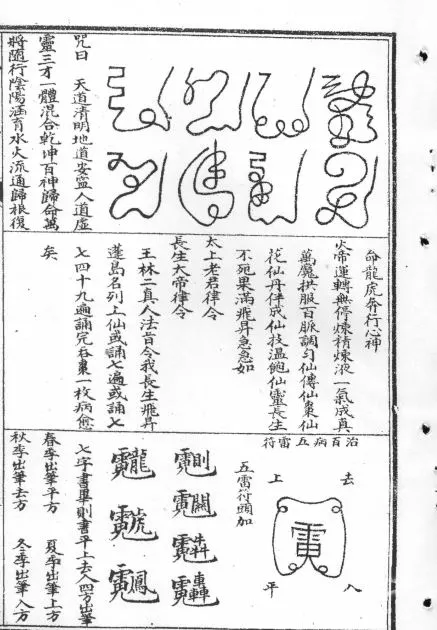 咒曰 天道清明地道安寧人道虛
靈三才一體混合乾坤百神歸命萬
將隨行陰陽涵育水火流通歸根復
命龍虎奔行心神
火帝運轉無停煉精煉液一氣成真
萬魔拱服百脈調勻仙傳仙棗仙
花仙丹伴成仙技溫飽仙靈長生
不宛果滿飛昇急急如
太上老君律令
長生大帝律令
王林二真人法旨令我長生飛昇
蓬島名列上仙或誦七遍或誦七
七四十九遍誦完吞棗一枚病愈
矣
治百病五雷符
去
入
上
平
五雷符頭加
七字書畢則書平上去入四方出筆
春季出筆平方 夏季出筆上方
秋季出筆去方 冬季出筆入方